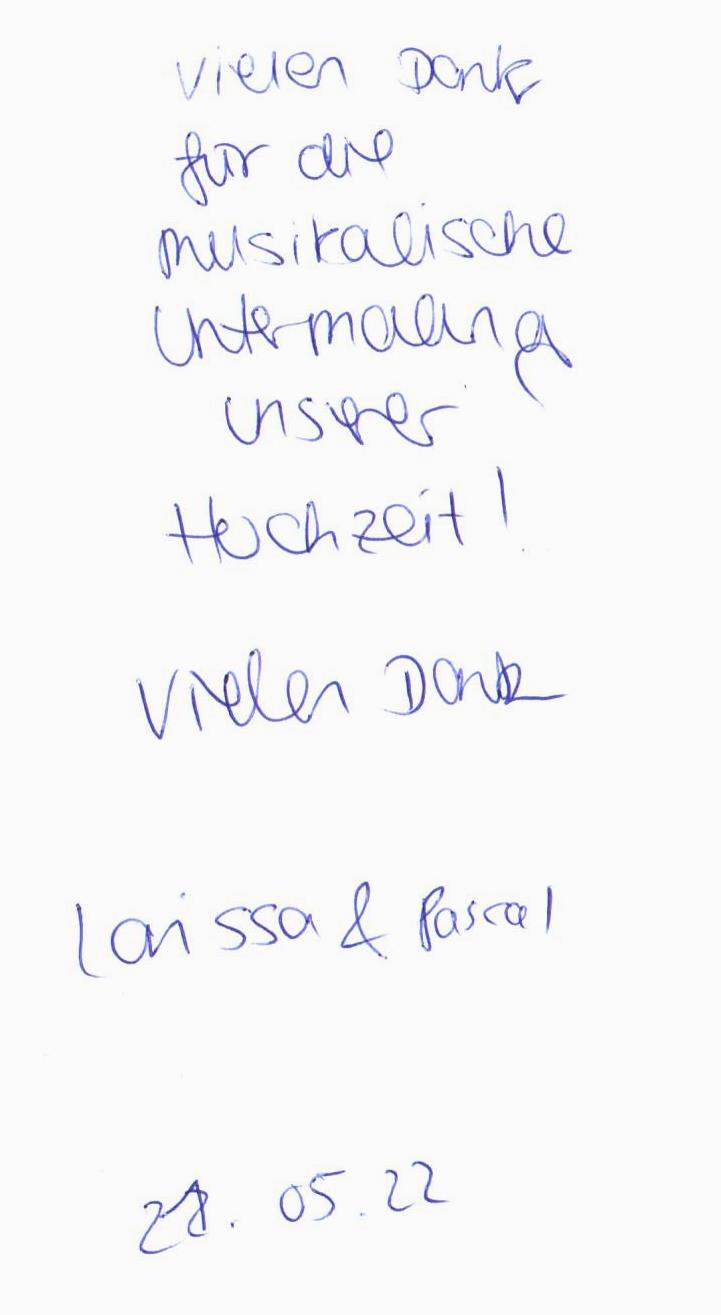 Vielen Dank
für die
musikalische
Untermalung
unserer
Hochzeit!
Vielen Dank
Larissa & Pascal
05.22